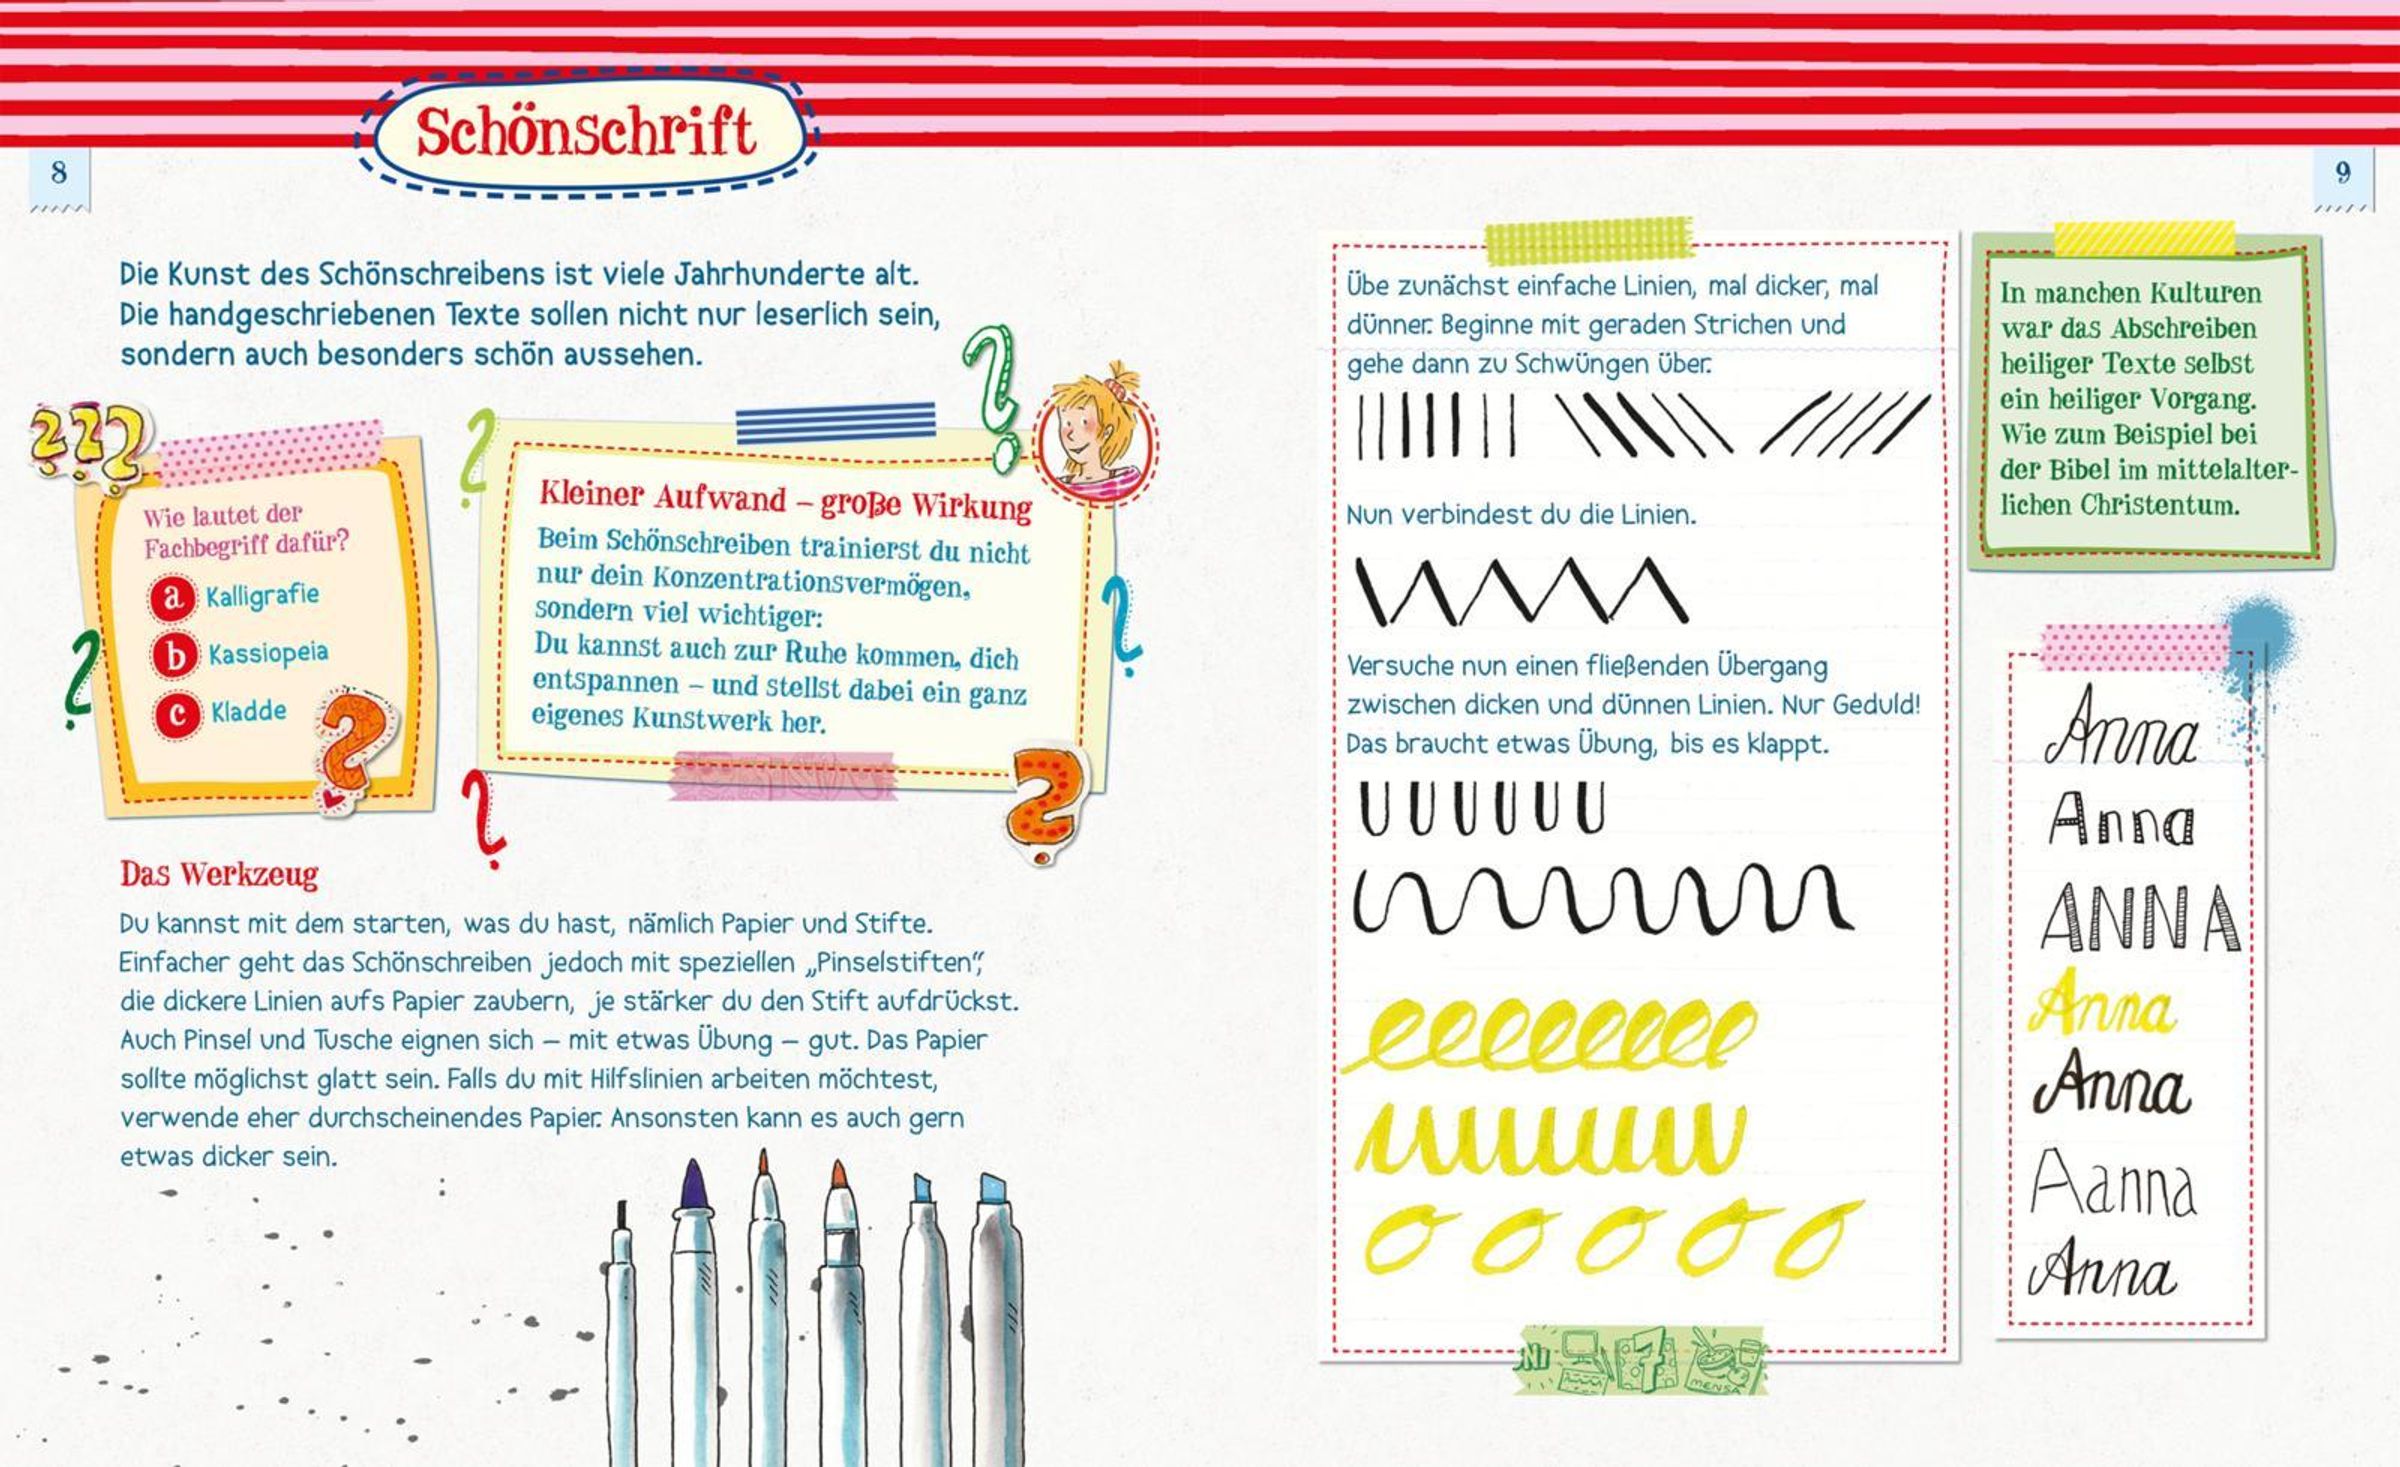 Schönschrift
8
Die Kunst des Schönschreibens ist viele Jahrhunderte alt.
Die handgeschriebenen Texte sollen nicht nur leserlich sein,
sondern auch besonders schön aussehen.
Wie lautet der
Fachbegriff dafür?
a Kalligrafie
b Kassiopeia
c Kladde
Kleiner Aufwand – große Wirkung
Beim Schönschreiben trainierst du nicht
nur dein Konzentrationsvermögen,
sondern viel wichtiger:
Du kannst auch zur Ruhe kommen, dich
entspannen – und stellst dabei ein ganz
eigenes Kunstwerk her.
Das Werkzeug
Du kannst mit dem starten, was du hast, nämlich Papier und Stifte.
Einfacher geht das Schönschreiben jedoch mit speziellen „Pinselstiften“,
die dickere Linien aufs Papier zaubern, je stärker du den Stift aufdrückst.
Auch Pinsel und Tusche eignen sich – mit etwas Übung – gut. Das Papier
sollte möglichst glatt sein. Falls du mit Hilfslinien arbeiten möchtest,
verwende eher durchscheinendes Papier. Ansonsten kann es auch gern
etwas dicker sein.
9
Übe zunächst einfache Linien, mal dicker, mal
dünner. Beginne mit geraden Strichen und
gehe dann zu Schwüngen über.
Nun verbindest du die Linien.
Versuche nun einen fließenden Übergang
zwischen dicken und dünnen Linien. Nur Geduld!
Das braucht etwas Übung, bis es klappt.
7
MENSA
In manchen Kulturen
war das Abschreiben
heiliger Texte selbst
ein heiliger Vorgang.
Wie zum Beispiel bei
der Bibel im mittelalter-
lichen Christentum.
Anna
Anna
ANNA
Anna
Anna
Aanna
Anna